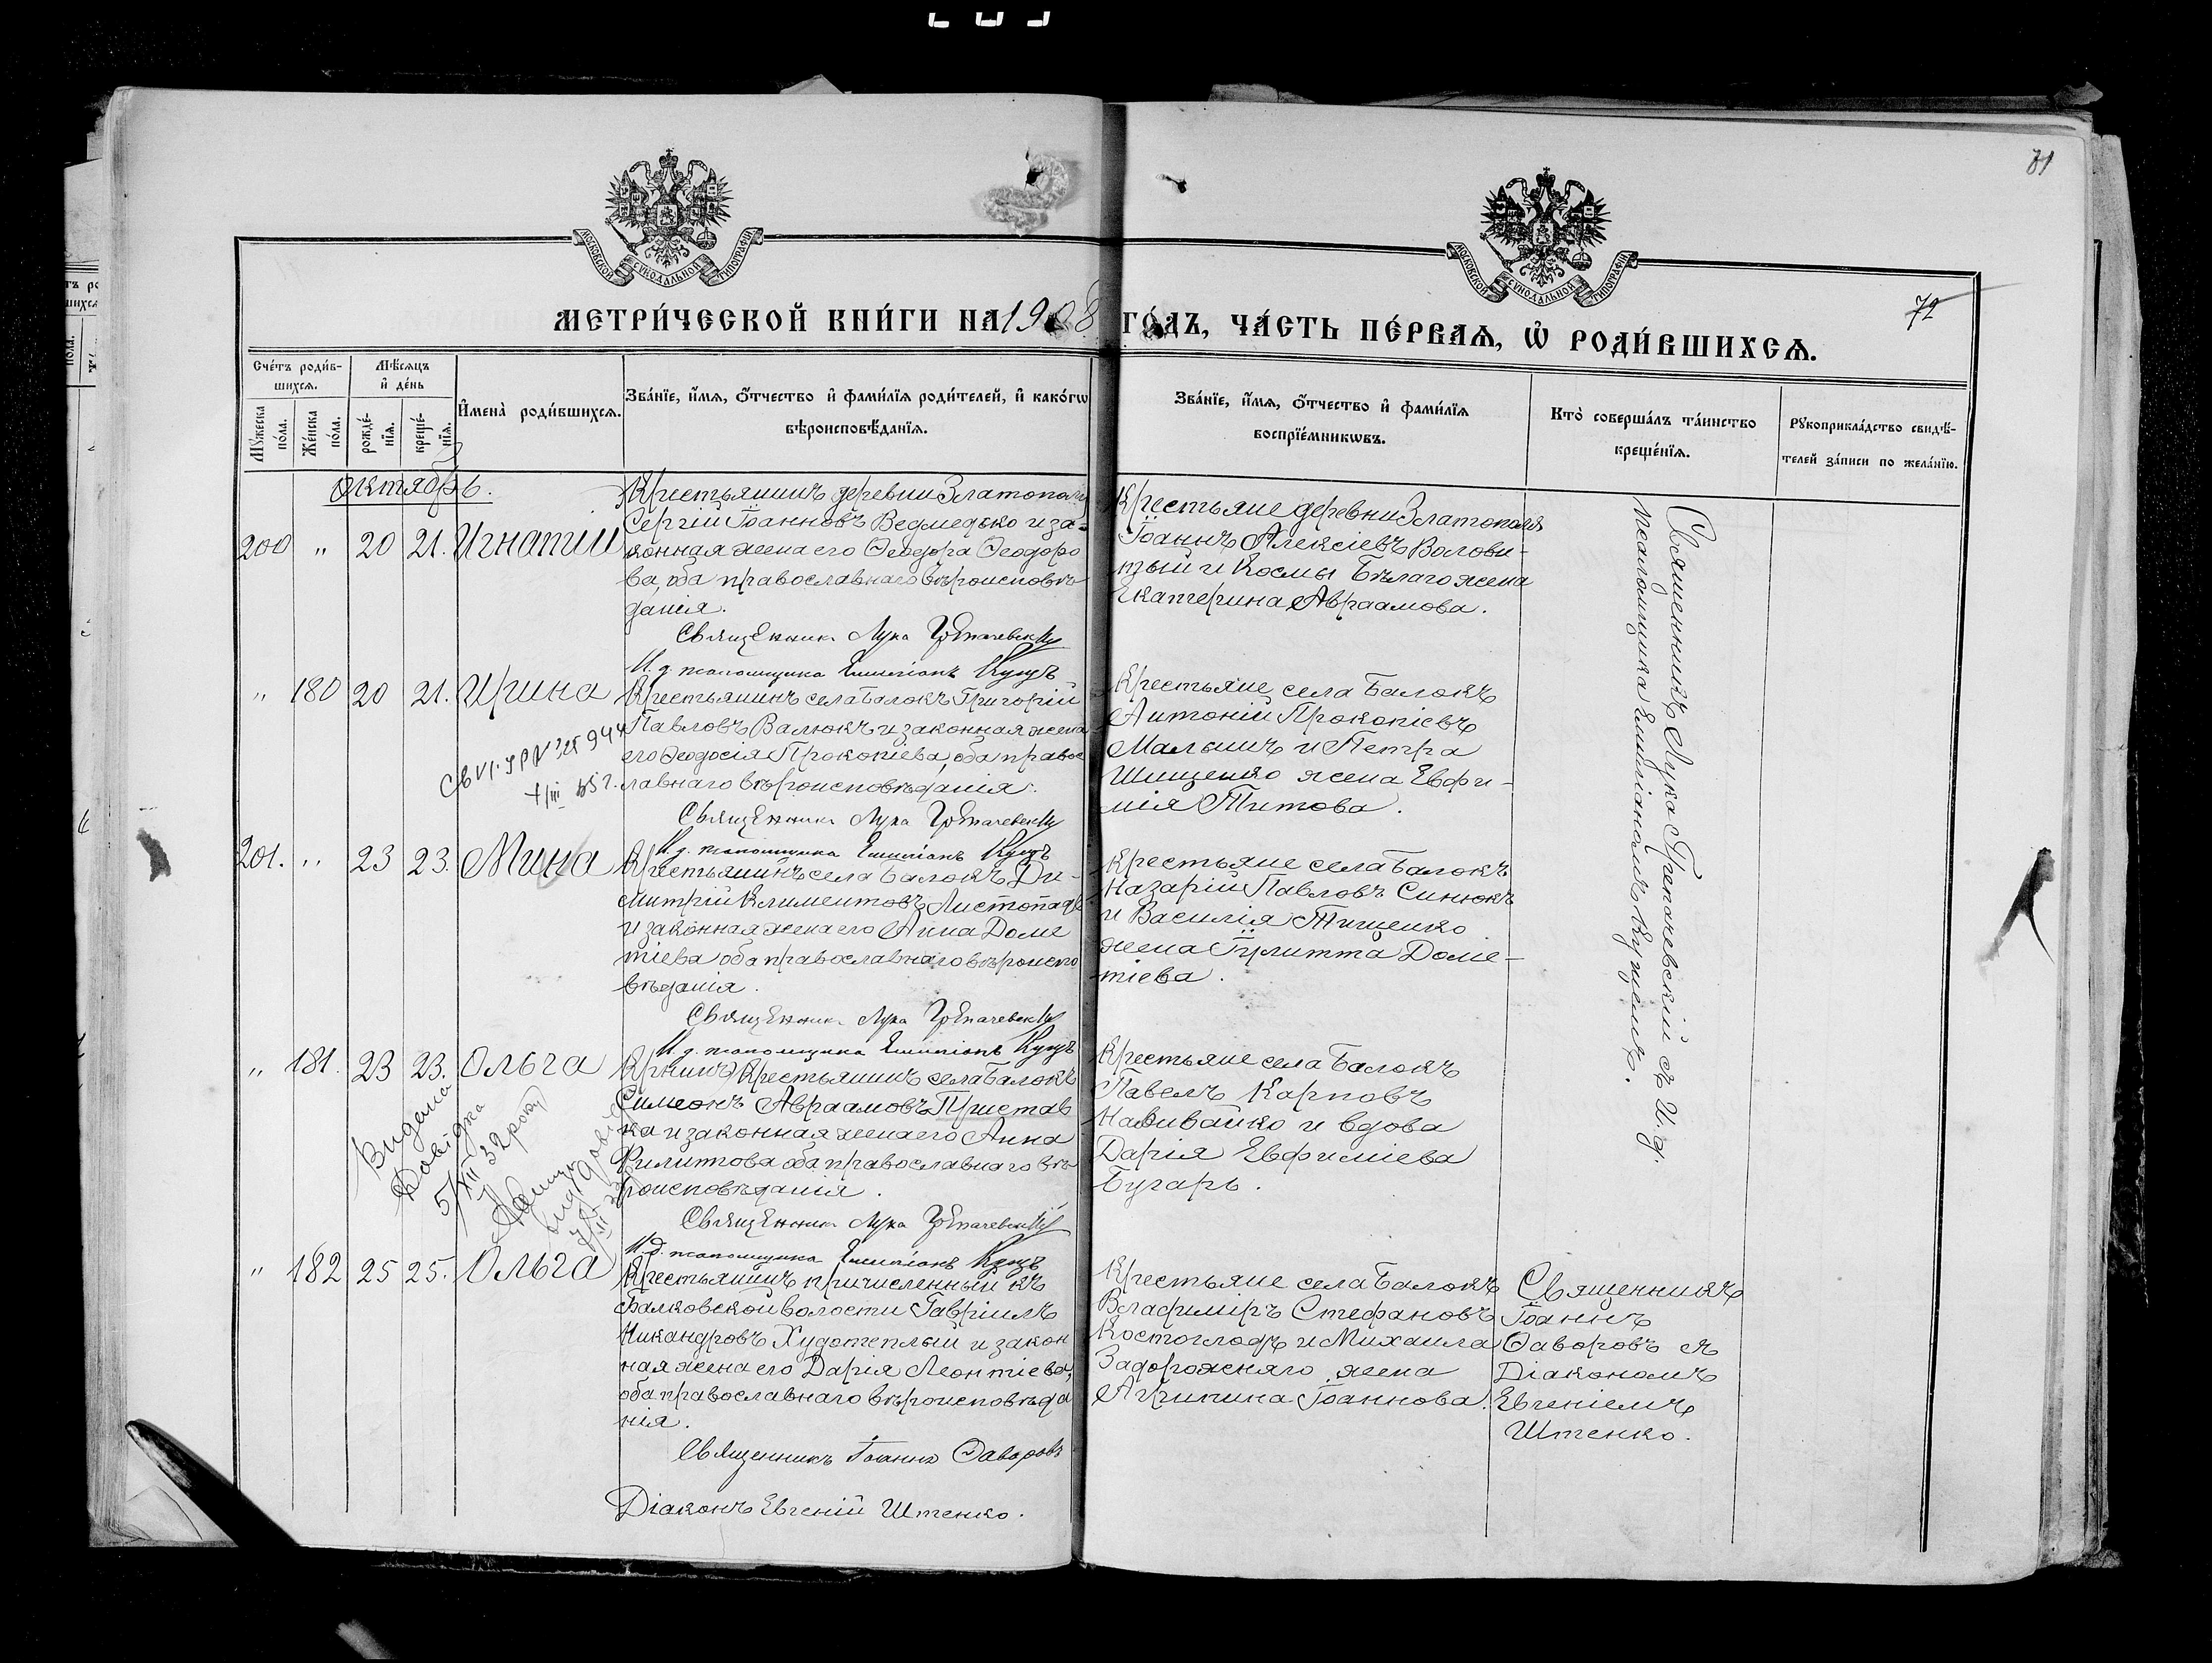 81
МОСКОВСКОЙ СУНОДАЛЬНОЙ ТИПОГРАФІИ
МОСКОВСКОЙ СУНОДАЛЬНОЙ ТИПОГРАФІИ
72
МЕТРИ́ЧЕСКОЙ КНИ́ГИ НА 1908 ГО́ДЪ, ЧА́СТЬ ПЕ́РВАѦ, Ѡ҆ РОДИ́ВШИХСѦ.
Сче́тъ роди́в-
шихсѧ.
Мѣ́сѧцъ
и҆ де́нь
Мꙋ́жеска по́ла.
Же́нска по́ла.
рожде́-
нїѧ.
креще́-
нїѧ.
И҆мена̀ роди́вшихсѧ.
Зва́нїе, и҆́мѧ, ѻ҆́тчество и҆ фами́лїѧ роди́телей, и҆ како́гѡ
вѣроисповѣ́данїѧ.
Зва́нїе, и҆́мѧ, ѻ҆́тчество и҆ фами́лїѧ
воспрїе́мникѡвъ.
Кто̀ соверша́лъ та́инство
креще́нїѧ.
Рꙋкоприкла́дство свидѣ́-
телей за́писи по жела́нїю.
Октябрь.
200 " 20 21. Игнатій
Крестьянинъ деревни Златополя
Сергій Іоанновъ Ведмедько и за-
конная жена его Ѳеодора Ѳеодоро
ва, оба православнаго вѣроисповѣ
данія.
Священникъ Лука Гречачевскій
И. д. псаломщика Емиліанъ Куцъ
Крестьяне деревни Златополя
Іоаннъ Алексіевъ Волови-
тый и Космы Бѣлаго жена
Екатерина Авраамова.
" 180 20 21. Ирина
Крестьянинъ села Балокъ Григорій
Павловъ Валюкъ и законная жена
его Ѳеодосія Прокопіева, оба правос
лавнаго вѣроисповѣданія.
Священникъ Лука Гречачевскій
И. д. псаломщика Емиліанъ Куцъ
Крестьяне села Балокъ
Антоній Прокопіевъ
Малышъ и Петра
Шищенко жена Евфи-
мія Титова.
201. " 23 23. Мина
Крестьянинъ села Балокъ Ди-
митрій Климентовъ Листопадъ
и законная жена его Анна Доме
тіева оба православнаго вѣроиспо
вѣданія.
Священникъ Лука Гречачевскій
И. д. псаломщика Емиліанъ Куцъ
Крестьяне села Балокъ
Назарій Павловъ Синюкъ
и Василія Тищенко
жена Іулитта Доме-
тіева.
" 181. 23 23. Ольга
Видана
Довідка
5/XII 32 року
Крестьянинъ села Балокъ
Симеонъ Авраамовъ Пристав
ка и законная жена его Анна
Филиппова оба православнаго вѣ
роисповѣданія.
Священникъ Лука Гречачевскій
И. д. псаломщика Емиліанъ Куцъ
Крестьяне села Балокъ
Павелъ Карповъ
Наливайко и вдова
Дарія Евфиміева
Бугарь.
Священникъ Лука Гречачевскій съ И. д.
псаломщика Емиліаномъ Куцемъ.
" 182 25 25. Ольга
Крестьянинъ причисленный къ
Балковской волости Гавріилъ
Никандровъ Худотеплый и закон
ная жена его Дарія Леонтіева,
оба православнаго вѣроисповѣда
нія.
Священникъ Іоаннъ Ѳаворовъ
Діаконъ Евгеній Штенко.
Крестьяне села Балокъ
Владиміръ Стефановъ
Костоглодъ и Михаила
Задорожняго жена
Агрипина Іоаннова.
Священникъ
Іоаннъ
Ѳаворовъ съ
Діакономъ
Евгеніемъ
Штенко.